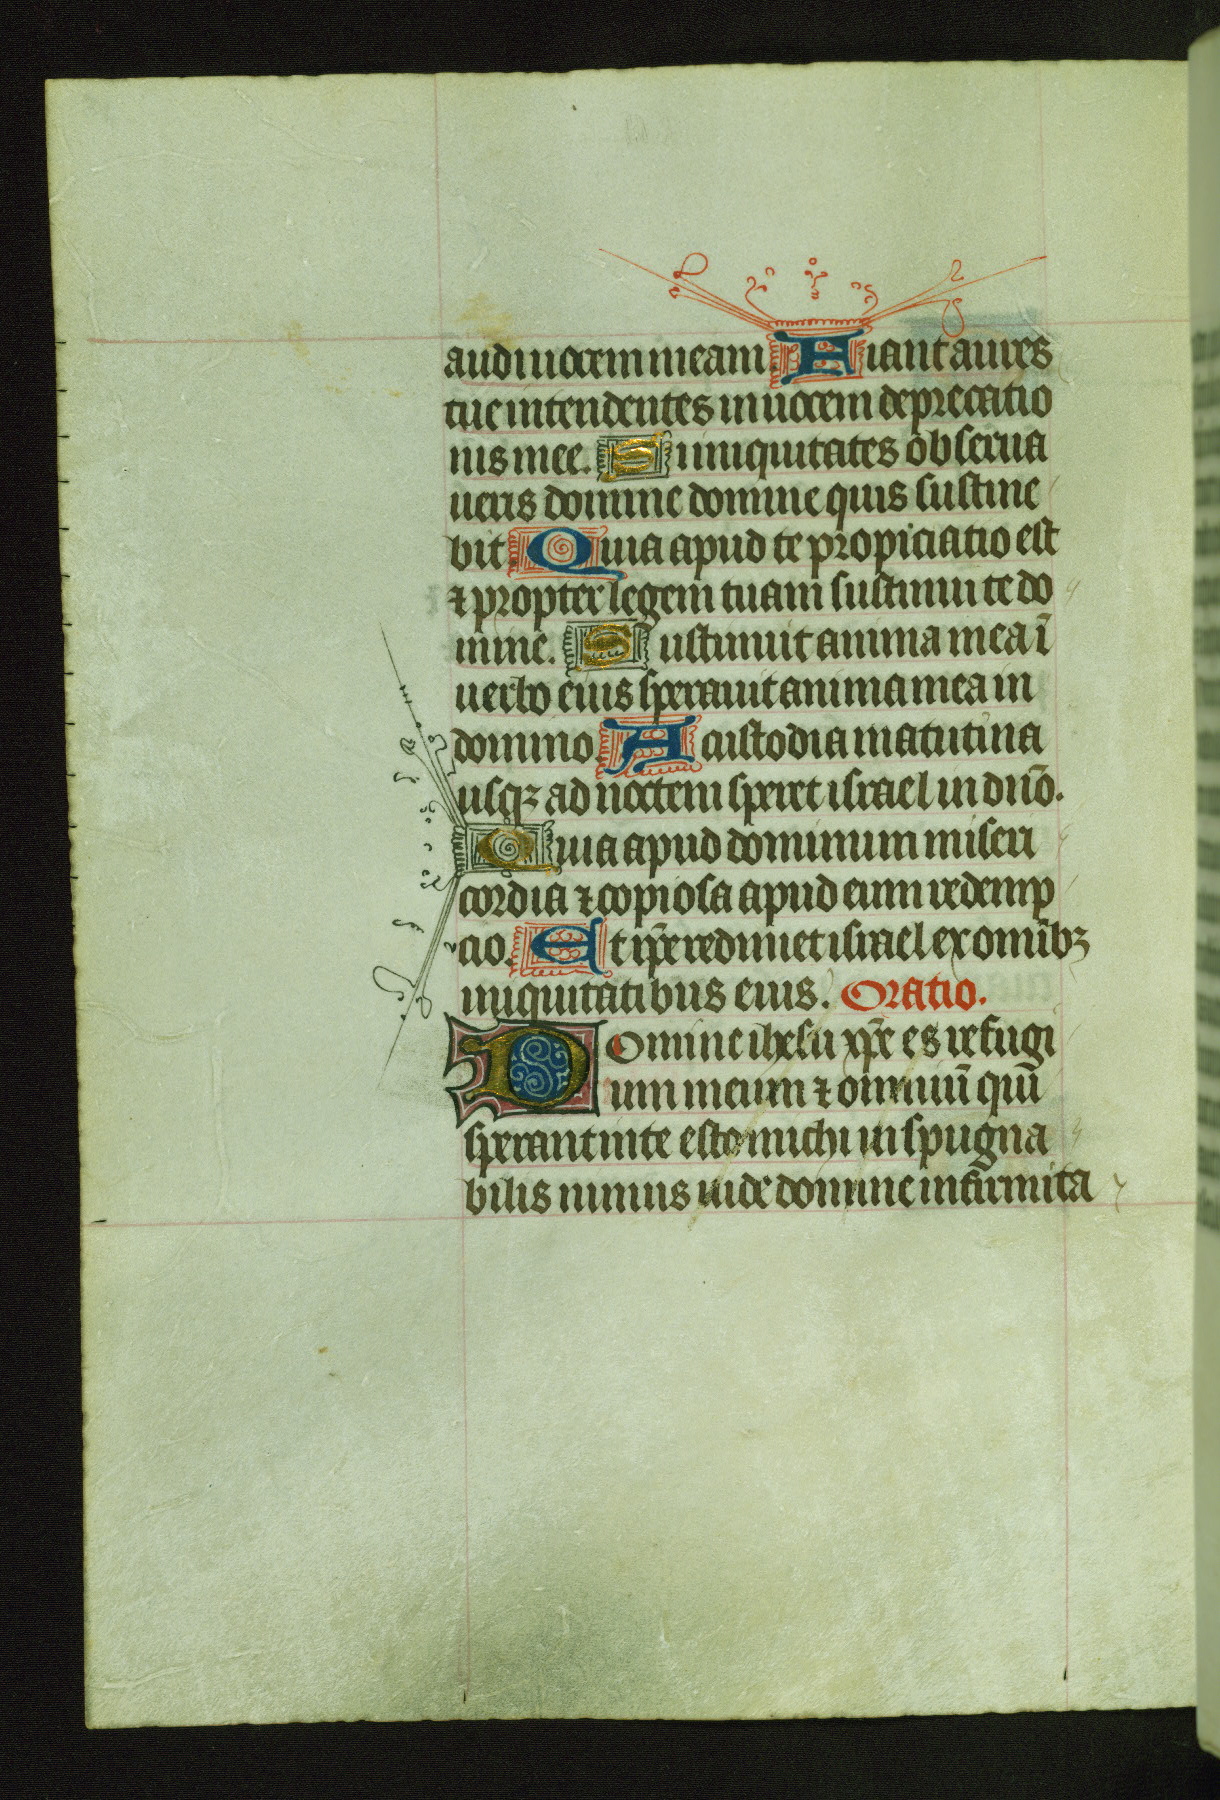 audi uocem meam. Fiant aures
tue intendentes in uocem deprecatio
nis mee. Si iniquitates obserua
ueris domine domine quis sustine
bit Quia apud te propiciatio est
⁊ propter legem tuam sustinui te do
mine. Sustinuit anima mea ī
uerbo eius sperauit anima mea in
domino. A custodia matutina
usqꝫ ad noctem speret israel in dnō.
Quia apud dominum miseri
cordia ⁊ copiosa apud eum redemp
cio. Et ip̄e redimet israel ex omīb⁊
iniquitatibus eius. Oratio.
Domine ihesu xp̄e es refugi
um meum ⁊ omniū quī
sperant in te esto michi in spugna
bilis nimus uide domine infirmita